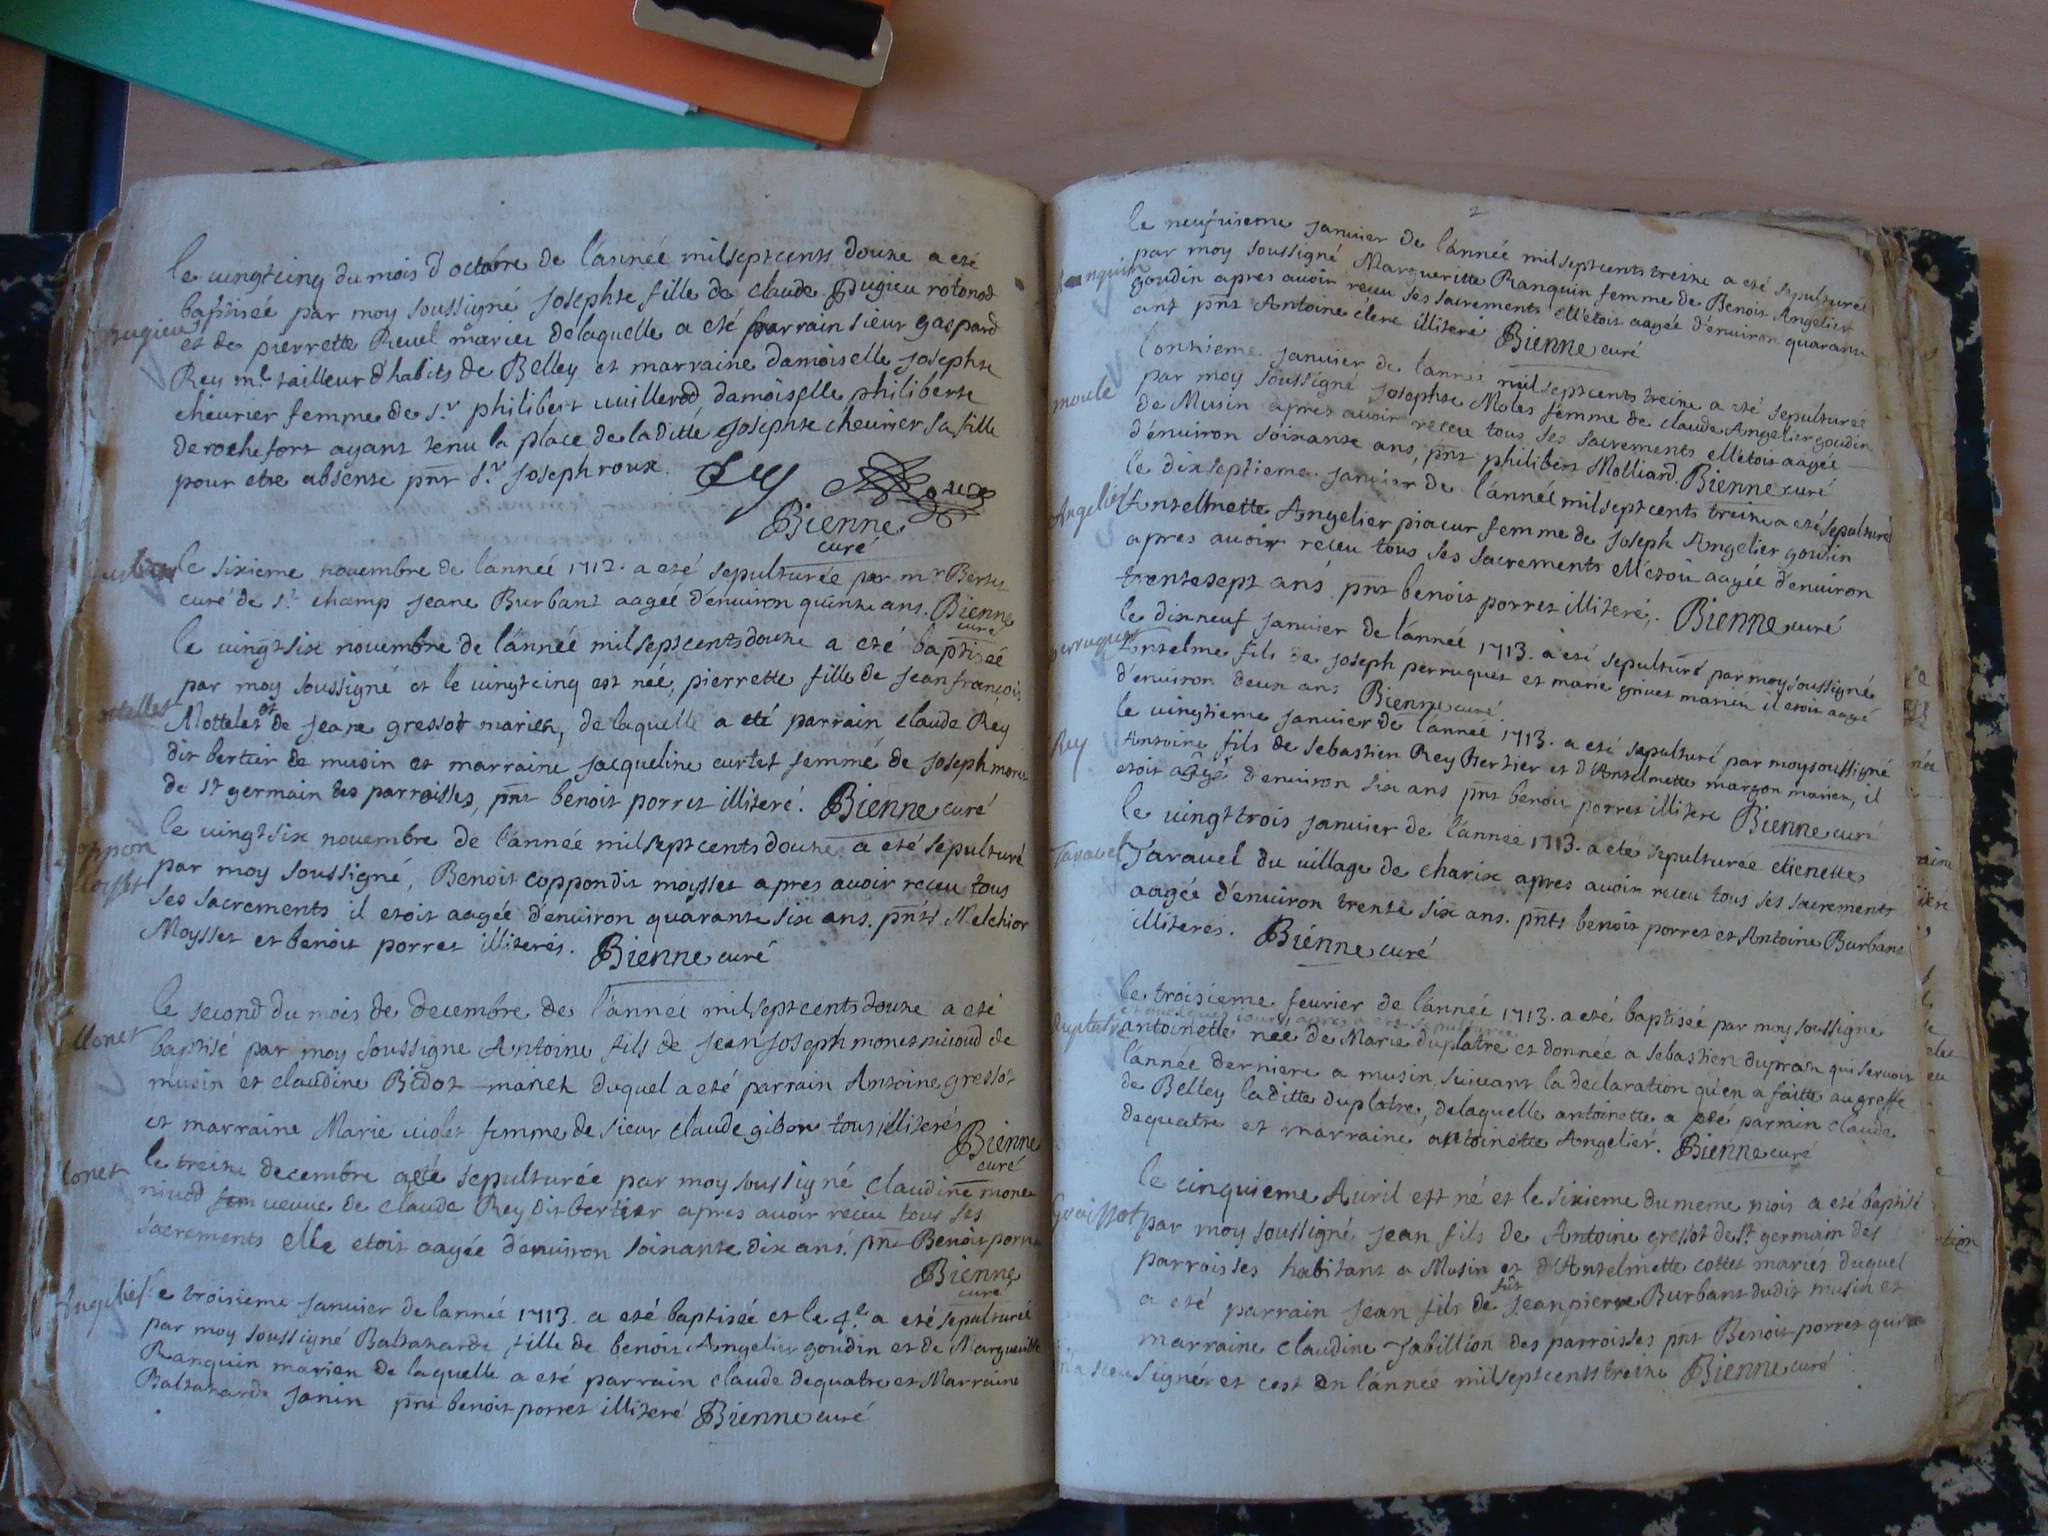 le vingtcinq du mois d'octobre de l'année milseptcents douze a eté
baptiseé par moy soussigné josephte fille de claude Pugieu rotonod
Pugieu
et de pierrette Revel mariez delaquelle a eté parrain sieur gaspard
Rey me. tailleur d'habits de Belley et marraine damoiselle josephte
chevrier femme de sr philibert vuillerod, damoiselle philiberte
derochefort ayant tenu la place de laditte josephte chevrier sa fille
pour etre absente pnt sr joseph roux. Rey
Bienne
curé
le sixieme novembre de l'anneé 1712. a eté sepulturée par mr
curé de st champ jeane Burbant aageé d'environ quinze ans. Bienne
curé
le vingtsix novembre de l'anneé milseptcentsdouze a eté baptiseé
par moy soussigné et le vingtcinq est neé, pierrette fille de jean francois
Mottelet et de jeane gressot mariez, de laquelle a eté parrain claude Rey
dit bertier de musin et marraine jacqueline curtet femme de joseph
de st germain des parroisses, pnt benoit porret illiteré. Bienne curé
le vingtsix novembre de l'anneé milseptcentsdouze a eté sepulturé
par moy soussigné, Benoit coppondit moysset apres avoir receu tous
ses sacrements il etoit aageé d'environ quarante six ans. pnts Melchior
Moysset et benoit porret illiterés. Bienne curé
le second du mois de decembre de l'anneé milseptcentsdouze a eté
baptisé par moy soussigné Antoine fils de jean joseph monet nicoud de
musin et claudine Bidot mariez duquel a eté parrain Antoine gressot
et marraine Marie violet femme de sieur claude gibon tous illiterés
Bienne
curé
le treize decembre a eté sepulturée par moy soussigné claudine monet
nicod veuve de claude Rey dit bertier apres avoir receu tous ses
sacrements elle etoit aageé d'environ soixante dix ans. pnt Benoit porret
Bienne
curé
Angelier
le troisieme janvier de lanneé 1713. a eté baptiseé et le 4e. a eté sepultureé
par moy soussigné Baltazarde fille de benoit Angelier goudin et de Margueritte
Ranquin mariez de laquelle a eté parrain claude dequatre et Marraine
Baltazarde Janin pnt benoit porret illiteré Bienne curé
2
le neufvieme janvier de l'anneé milseptcentstreize a eté sepulturée
par moy soussigné Margueritte Ranquin femme de Benoit Angelier
goudin apres avoir receu ses sacrements ell'etoit aageé d'environ quarante
ans pnt Antoine clerc illiteré Bienne curé
l'onzieme janvier de l'anneé milseptcents treize a eté sepulturée
moule
par moy soussigné josephte Moles femme de claude Angelier goudin
de Musin apres avoir receu tous ses sacrements ell'etoit aageé
d'environ soixante ans, pnt philibert Molliard. Bienne curé
le dixseptieme janvier de l'anneé milseptcents treize a eté sepulturé
Angelier
Antelmette Angelier piacur femme de joseph Angelier goudin
apres avoir receu tous ses sacrements ell'etoit aageé d'environ
trentesept ans. pnt benoit porret illiteré. Bienne curé
le dixneuf janvier de l'anneé 1713. a eté sepulturé par moy soussigné
perruquet
Antelme fils de joseph perruquet et marie grivet mariez il etoit aagé
d'environ deux ans Bienne curé.
le vingtieme janvier de l'anneé 1713. a eté sepulturé par moy soussigné
Rey
Antoine fils de sebastien Rey Bertier et d'Antelmette margon mariez, il
etoit aagé d'environ six ans pnt benoit porret illiteré Bienne curé
le vingttrois janvier de l'anneé 1713. a eté sepulturée etienette
Taravel
Taravel du village de charix apres avoir receu tous ses sacrements
aageé d'environ trente six ans. pnts benoit porret et Antoine Burbane
illiterés. Bienne curé
le troisieme fevrier de l'anneé 1713. a eté baptiseé par moy soussigné
et quelques jours apres a eté sepulturée
duplatre
antoinette neé de Marie duplatre et donnée a sebastien duprat qui servoit
l'anneé derniere a musin, suivant la declaration qu'en a faitte au greffe
de Belley laditte duplatre, delaquelle antoinette a eté parrain claude
dequatre et marraine antoinette Angelier. Bienne curé
le cinquieme Avril est né et le sixieme du meme mois a eté baptisé
par moy soussigné jean fils de Antoine gressot de st germain des
parroisses habitant a Musin et d'Antelmette cottet mariés duquel
a eté parrain jean fils de fût jean pierre Burbant dudit musin et
marraine claudine jabillion des parroisses pnt Benoit porret qui
n'a sceu signér et cest en l'anneé milseptcentstreize Bienne curé